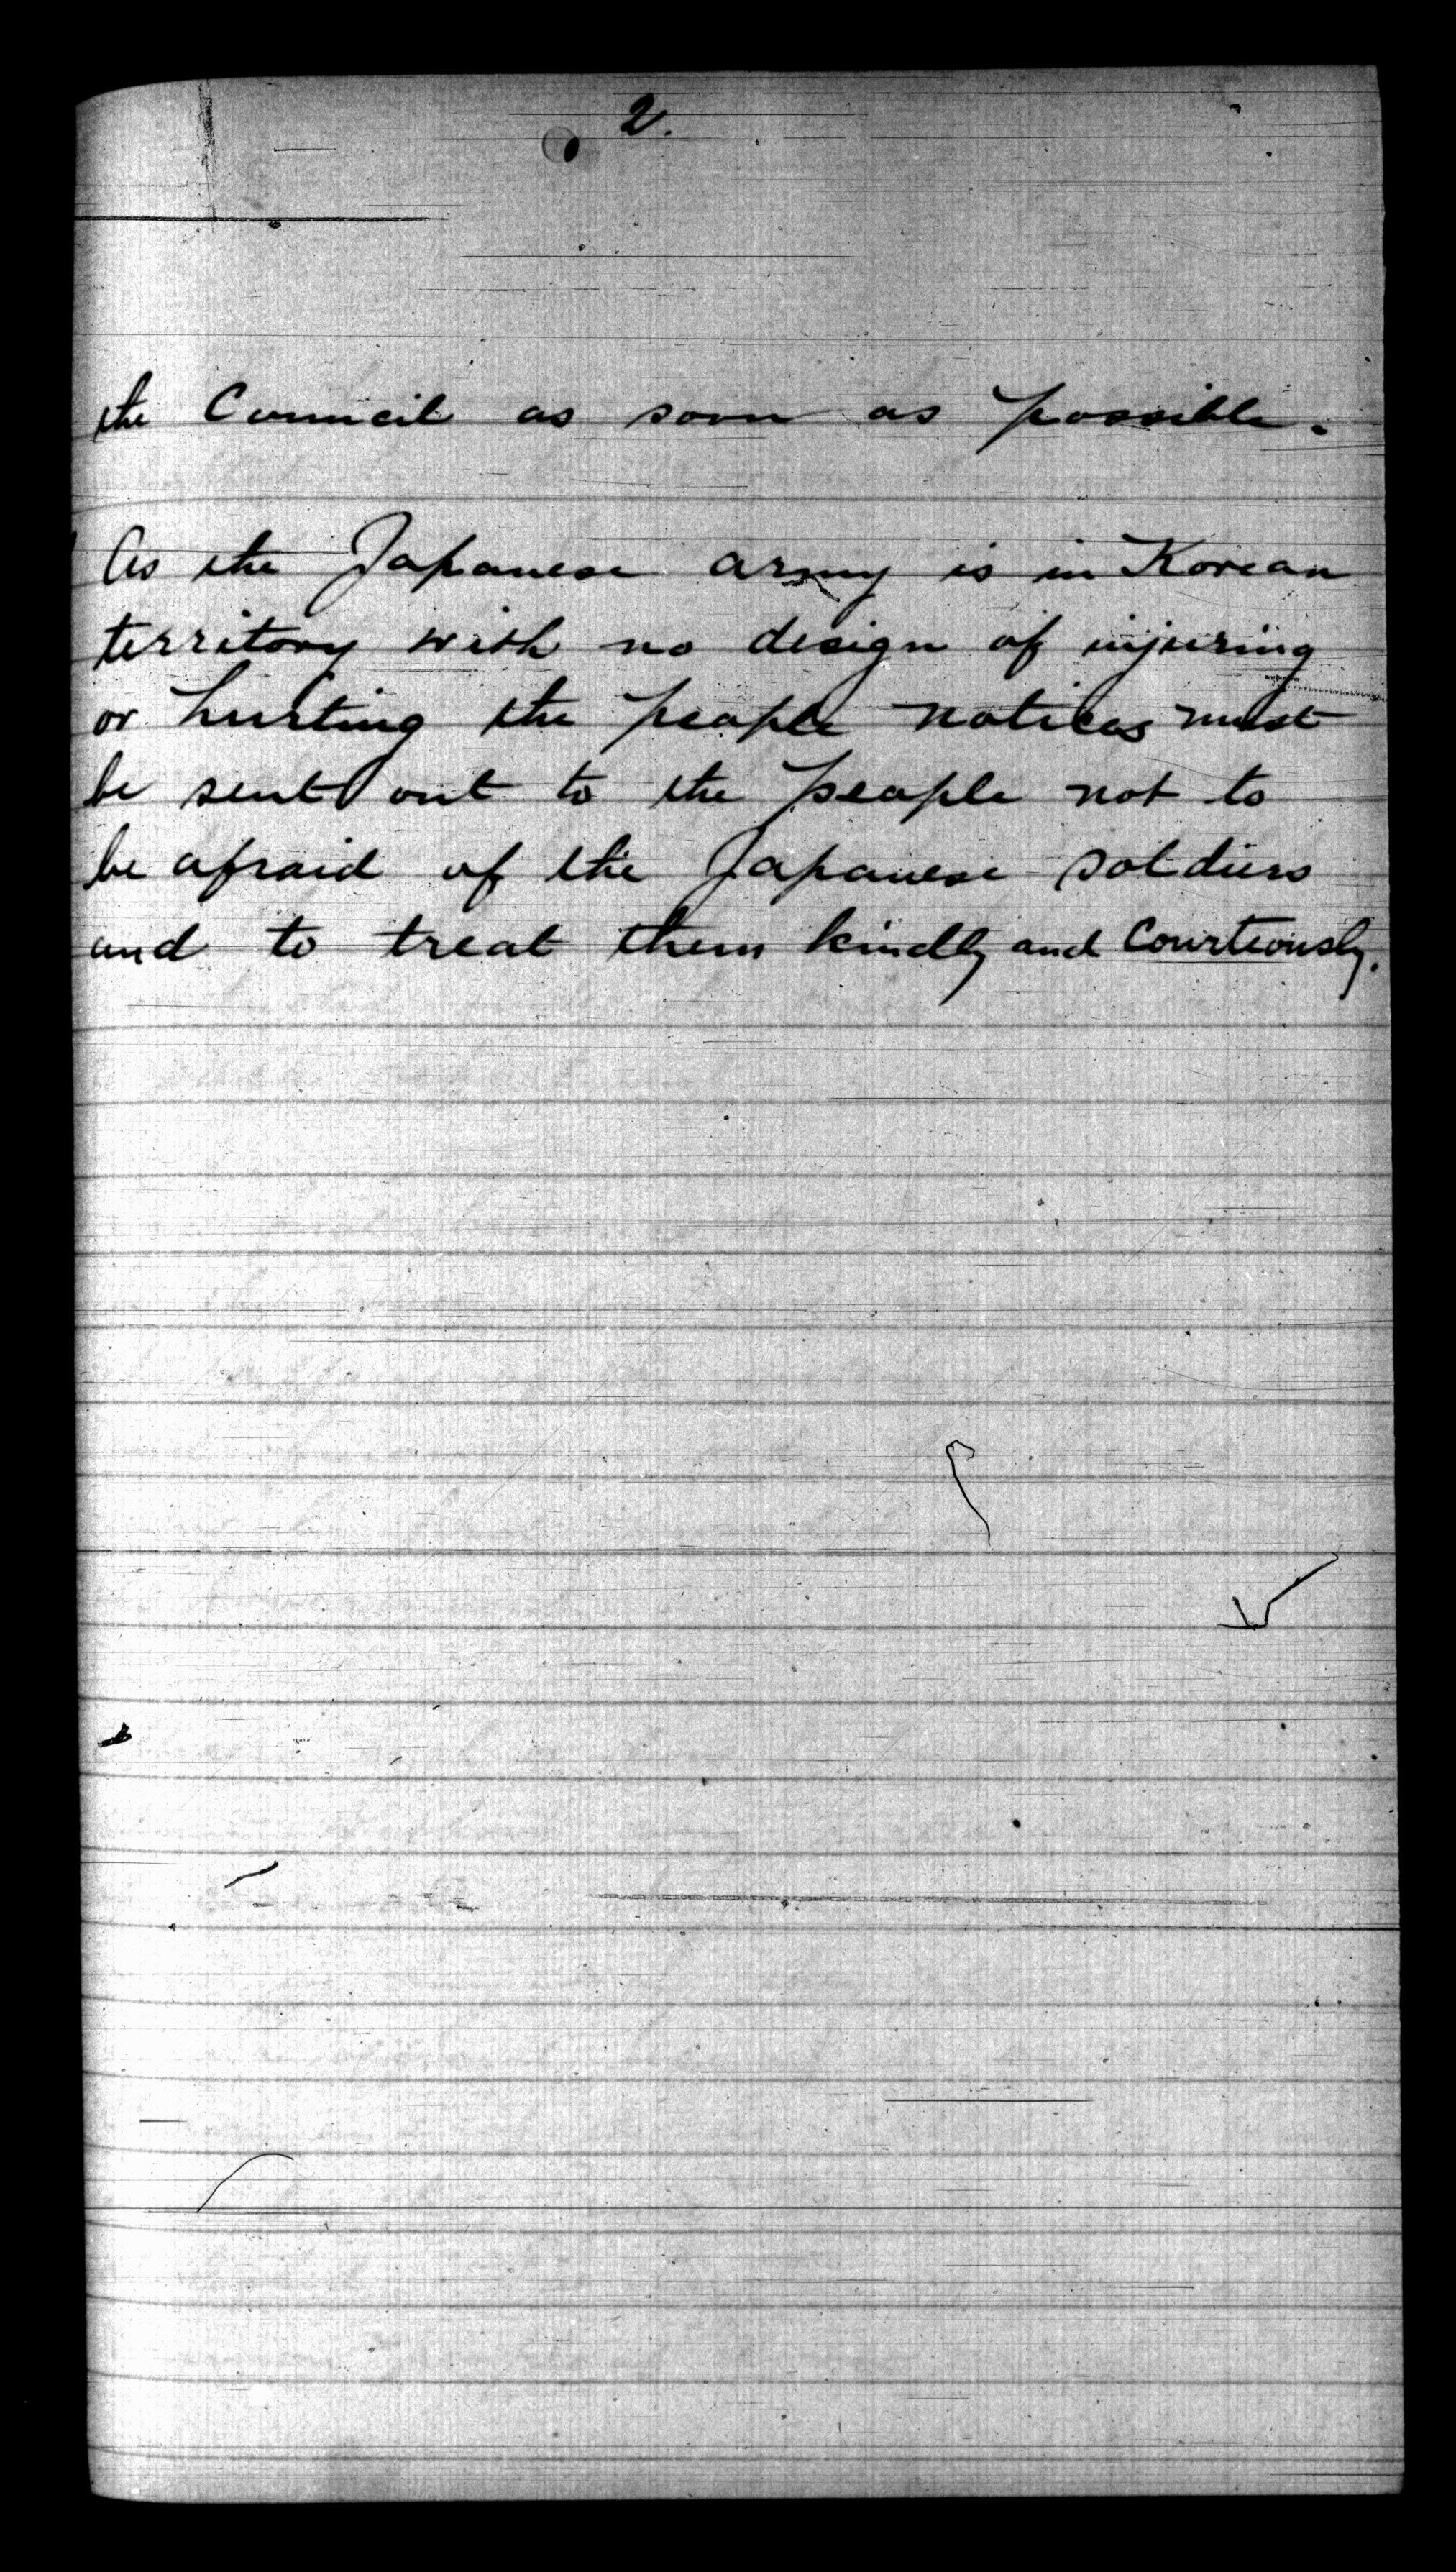 2.
the Council as soon as possible.
As the Japanese army is in Korean
territory with no design of injuring
or hurting the people notices must
be sent out to the people not to
be afraid of the Japanese soldiers
and to treat them kindly and courteously.